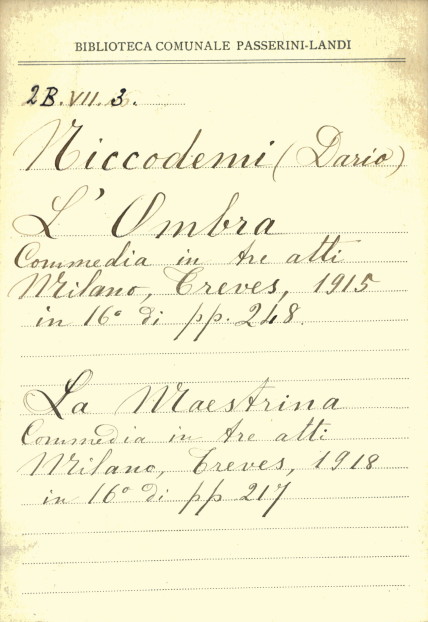 BIBLIOTECA COMUNALE PASSERINI-LANDI
2B.VII.3.
Niccodemi (Dario)
L'Ombra
Commedia in tre atti
Milano, Treves, 1915
in 16° di pp. 248.
La Maestrina
Commedia in tre atti
Milano, Treves, 1918
in 16° di pp 217